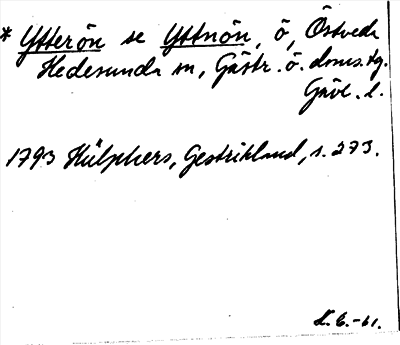 * Ytterön se Yttnön, ö, Östveda
Hedesunda sn, Gästr. ö. doms.tg.
Gävl. l.
1793 Hülphers, Gestrikland, s. 273.